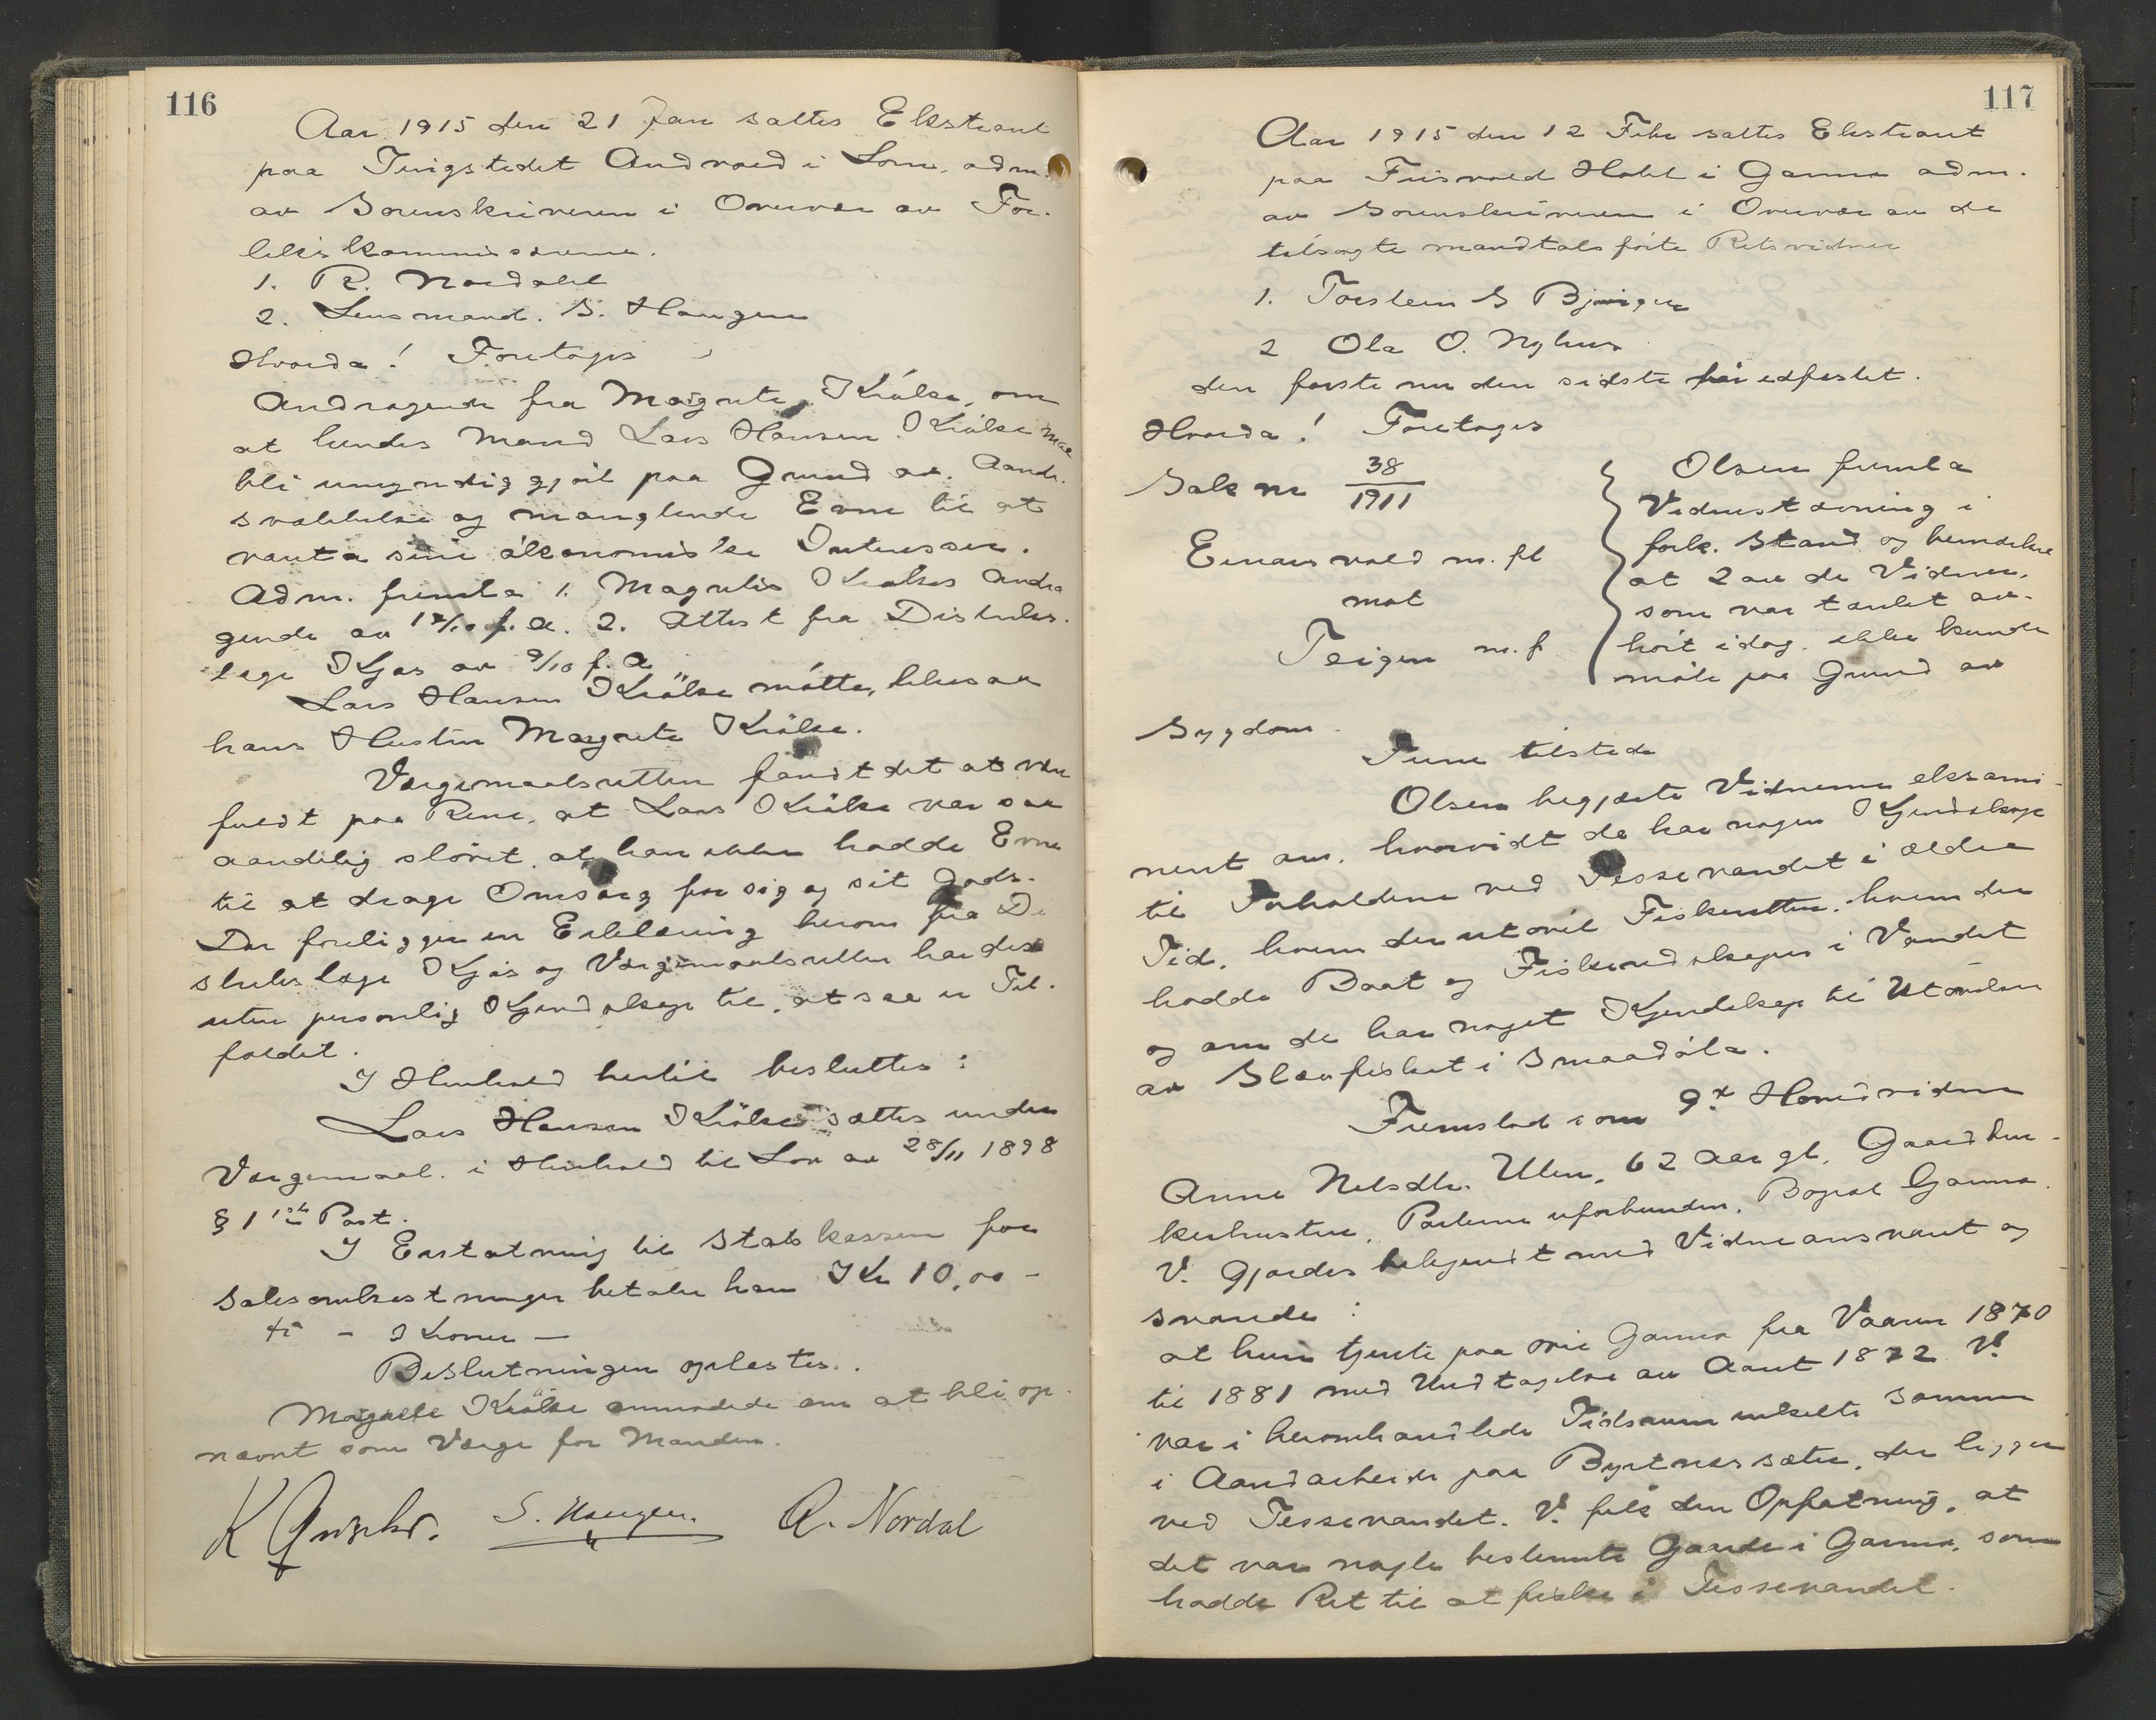 116
Aar 1915 den 21 Jan sattes Ekstraret
paa Tingstedet Andvord i Lom, adm.
av Sorenskriveren i Overvær av For-
likskommissærerne.
1. R. Nordahl
2. Lensmand. S. Haugen
Hvorda! Foretoges
Andragende fra Magrete Kråke, om
at hendes Mand Lars Hansen Kråke maa
bli umyndiggjort paa Grund av Aands-
svækkelse og manglende Evne til at
vareta sine økonomiske Interesser.
Adm. fremla 1. Magretes Kråkes Andra
gende av 12/10 f. A. 2. Attest fra Distrikts-
læge Kjos av 9/10 f. A.
Lars Hansen Kråke møtte, likesaa
hans Hustru Magrete Kråke.
Værgemaalsretten fandt det at være
fuldt paa Rene, at Lars Kråke var saa
aandelig sløvet, at han ikke hadde Evne
til at drage Omsorg for sig og sit Gods.
Der foreligger en Erklæring herom fra Di
strikslæge Kjos og Værgemaalsretten har des
uten personlig Kjendskap til, at saa er Til-
fældet.
I Henhold hertil besluttes:
Lars Hansen Kråke sættes under
Værgemaal i Henhold til Lov av 28/11 1898
§ 1 1ste Post.
I Erstatning til Statskassen for
Saksomkostninger betaler han Kr 10,00 -
ti - Kroner -
Beslutningen oplæstes.
Magrete Kråke anmodede om at bli op-
nævnt som Værge for Manden.
S. Haugen. R. Nordal
117
Aar 1915 den 12 Febr sattes Ekstraret
paa Friisvold Hotel i Garmo adm.
av Sorenskriveren i Overvær av de
tilsagte mandtalsførte Retsvidner
1. Torstein S Bjørgen
2 Ola O. Nyhus
den første nu den sidste før edfæstet.
Hvorda! Foretoges
Sak nr 38/1911
Einarsvold m. fl
mot
Teigen m. f
Olsen fremla
Vidnestævning i
fork. Stand og bemerket
at 2 av de Vidner,
som var tænkt av-
hørt idag, ikke kunde
møte paa Grund av
Sygdom.
Tune tilstede
Olsen begjærte Vidnerne eksami-
nert om, hvorvidt de har nogen Kjendskap
til Forholdene ved Tessevandet i ældre
Tid, hvem der utøvet Fiskeretten, hvem der
hadde Baat og Fiskeredskaper i Vandet
og om de har noget Kjendskap til Utøvelsen
av Slævfisket i Smaadøla.
Fremstod som 9de Hovedvidne
Anne Nelsdtr. Ulen, 62 Aar gl. Gaardbru-
kerhustru, Parterne uforbunden. Bopæl Garmo.
V. gjordes bekjendt med Vidneansvaret og
svarede:
at hun tjente paa øvre Garmo fra Vaaren 1870
til 1881 med Undtagelse av Aaret 1872 V.
var i heromhandlede Tidsrum enkelte Somme
i Aandarbeide paa Byrtnessæter, der ligger
ved Tessevandet. V. fik den Opfatning, at
det var nogle bestemte Gaarde i Garmo, som
hadde Ret til at fiske i Tessevandet.